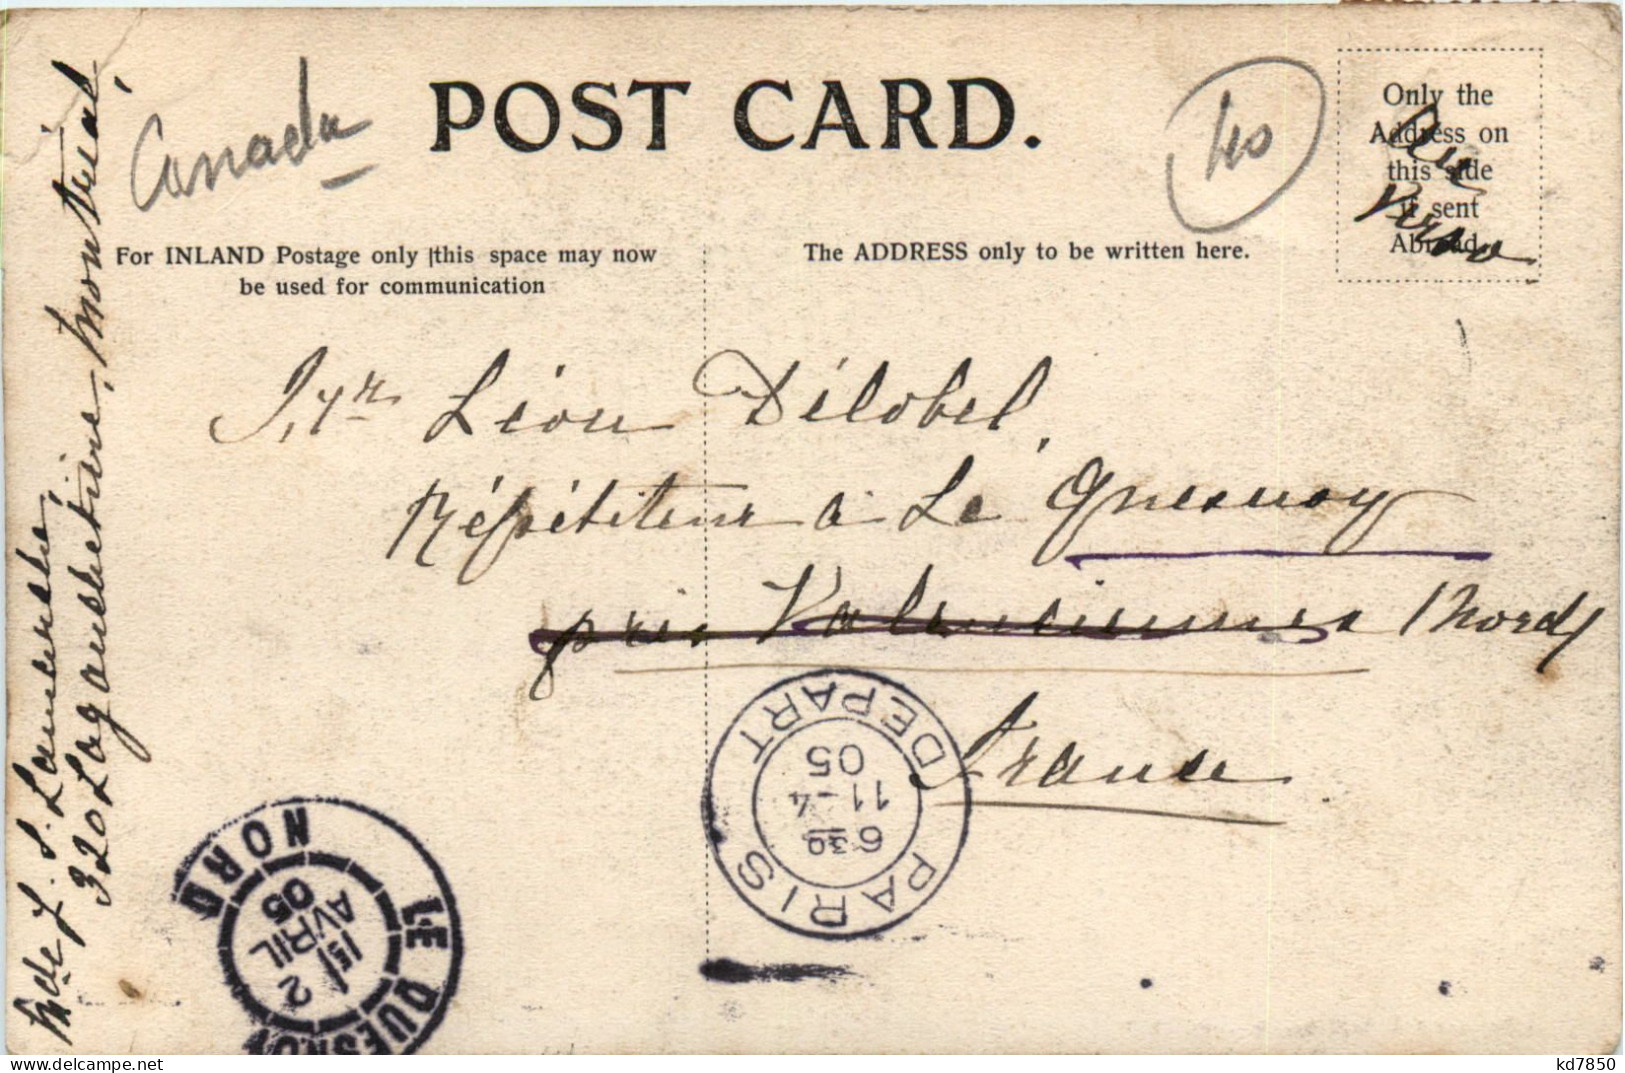 POST CARD.
Canada
40
Only the
Address on
this side
if sent
Abroad
Verso
For INLAND Postage only this space may now
be used for communication
The ADDRESS only to be written here.
Léon Délobel,
Répétiteur à Le Quesnoy
près Valenciennes (Nord)
France
Mde J. S.
320 Lagauchetière, Montréal
PARIS DEPART
6 30
11 - 4
05
LE QUESNOY
NORD
2
15
AVRIL
05
kd7850